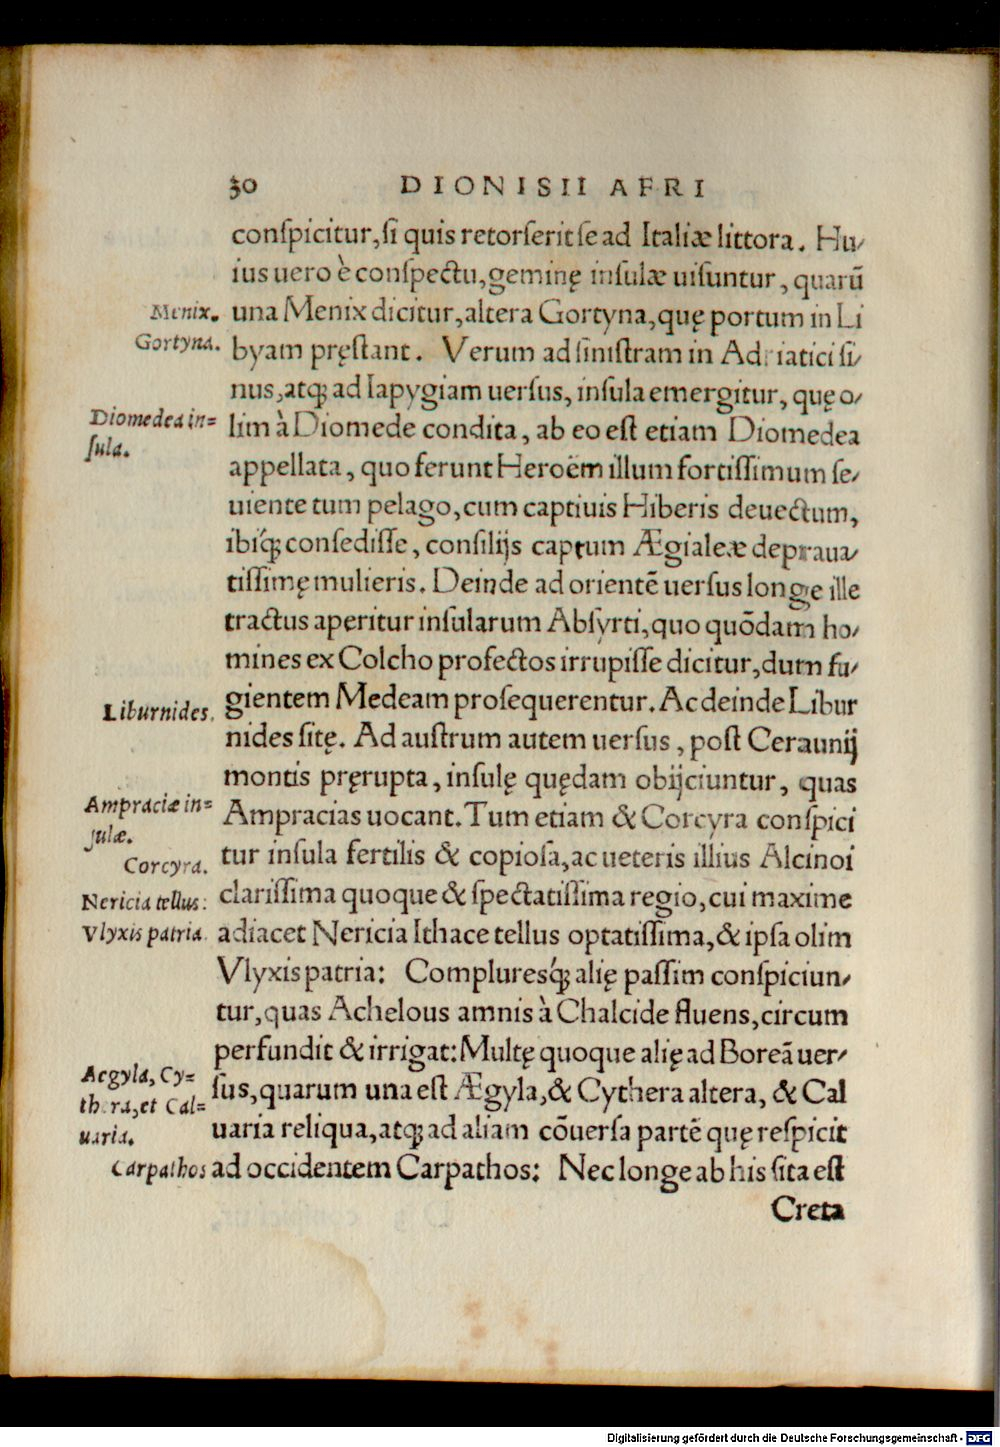 30 DIONISII AFRI
conſpicitur,ſi quis retorſerit ſe ad Italiæ littora. Hu/
ius uero è conſpectu,geminę inſulæ uiſuntur, quarū
Menix. una Menix dicitur,altera Gortyna,quę portum in Li
Gortyna. byam pręſtant. Verum ad ſiniſtram in Adriatici ſi/
nus,atq; ad Iapygiam uerſus, inſula emergitur, quę o/
Diomedea in= lim à Diomede condita, ab eo eſt etiam Diomedea
ſula. appellata, quo ferunt Heroëm illum fortiſſimum ſe/
uiente tum pelago,cum captiuis Hiberis deuectum,
ibiq́; conſediſſe, conſilijs captum Ægialeæ depraua/
tiſſimę mulieris. Deinde ad orientē uerſus longe ille
tractus aperitur inſularum Abſyrti,quo quōdam ho/
mines ex Colcho profectos irrupiſſe dicitur,dum fu/
Liburnides. gientem Medeam proſequerentur. Ac deinde Libur
nides ſitę. Ad auſtrum autem uerſus, poſt Ceraunij
montis pręrupta, inſulę quędam obijciuntur, quas
Ampraciæ in= Ampracias uocant. Tum etiam & Corcyra conſpici
ſulæ.
Corcyra. tur inſula fertilis & copioſa,ac ueteris illius Alcinoi
Nericia tellus: clariſſima quoque & ſpectatiſſima regio,cui maxime
Vlyxis patria. adiacet Nericia Ithace tellus optatiſſima,& ipſa olim
Vlyxis patria: Compluresq́; alię paſſim conſpiciun/
tur,quas Achelous amnis à Chalcide fluens,circum
perfundit & irrigat: Multę quoque alię ad Boreā uer/
Aegyla, Cy= ſus,quarum una eſt Ægyla,& Cythera altera, & Cal
thera,et Cal=
uaria. uaria reliqua,atq; ad aliam cōuerſa partē quę reſpicit
Carpathos ad occidentem Carpathos: Nec longe ab his ſita eſt
Creta
Digitalisierung gefördert durch die Deutsche Forschungsgemeinschaft - DFG